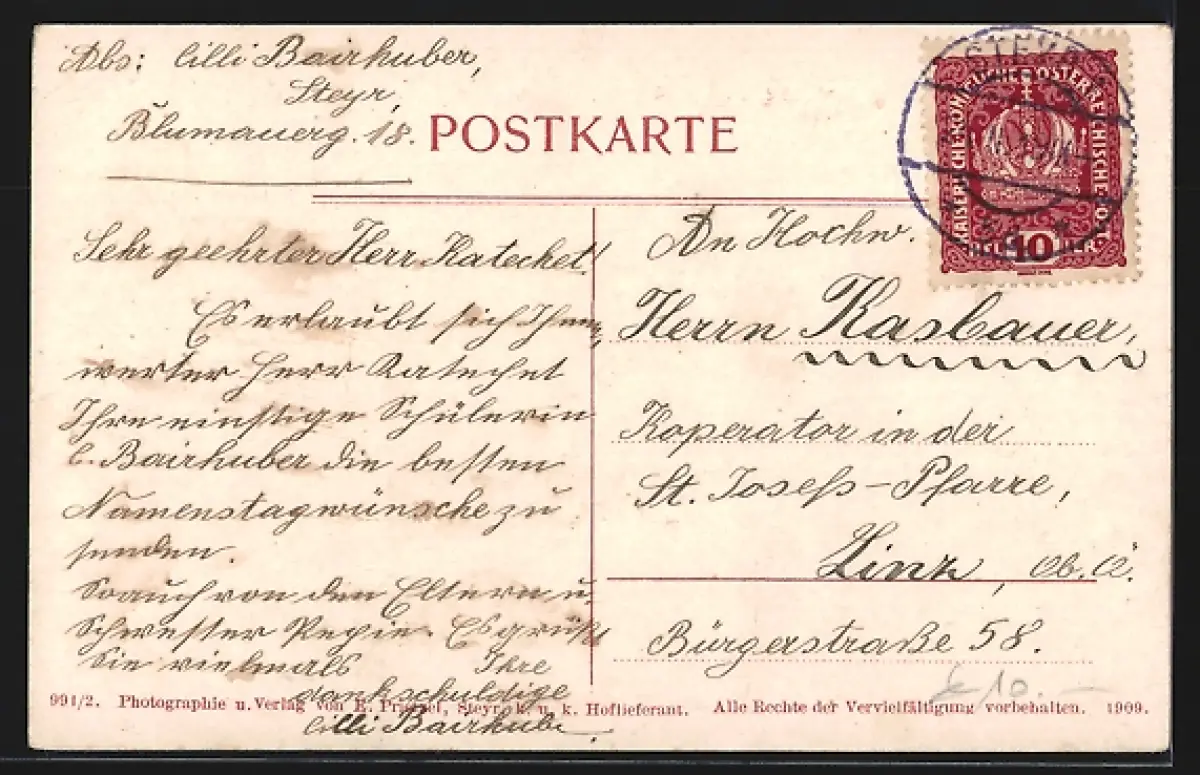 Abs: Cilli Bairhuber,
Steyr,
Blumauerg. 18.
POSTKARTE
STEYR
KAISERLICHE KÖNIGLICHE ÖSTERREICHISCHE POST
HELLER 10 HELLER
Sehr geehrter Herr Katechet!
Es erlaubt sich Ihnen,
werter Herr Katechet
Ihre einstige Schülerin
C. Bairhuber die besten
Namenstagwünsche zu
senden.
So auch von den Eltern u.
Schwester Pepie. Es grüßt
Sie vielmals Ihre
dankschuldige
Cilli Bairhube
An Hochw.
Herrn Kasbauer,
Koperator in der
St. Josefs-Pfarre,
Linz, Ob. Ö.
Bürgerstraße 58.
10.-
991/2. Photographie u. Verlag von E. Prietzel, Steyr, k. u. k. Hoflieferant. Alle Rechte der Vervielfältigung vorbehalten. 1909.